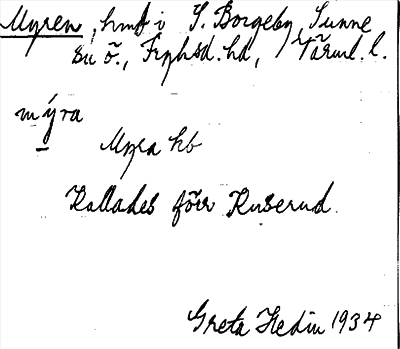 Myren, hmd i S. Borgeby, Sunne
sn ö., Fryksd. hd, Värml. l.
mýra
Myra hb
Kallades förr Ruserud.
Greta Hedin 1934